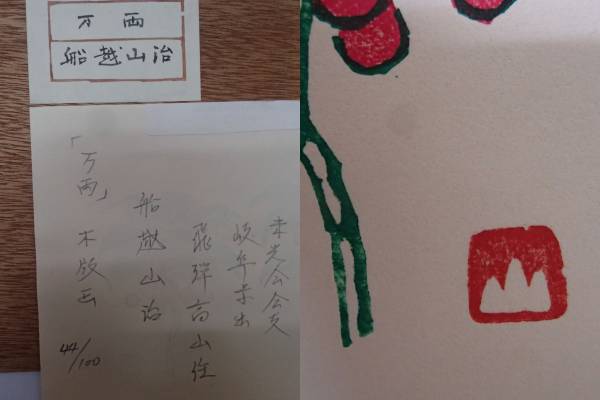 万両
船越山治
東光会会友
岐阜県出
飛弾高山住
船越山治
「万両」木版画
44/100